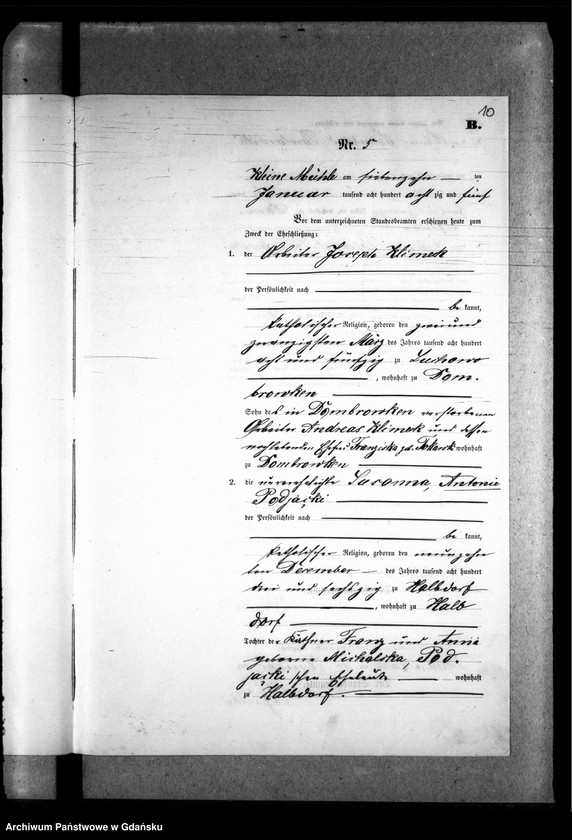 10
B.
Nr. 5
Kleine Mühle am siebenzehn ten
Januar tausend acht hundert acht zig und fünf
Vor dem unterzeichneten Standesbeamten erschienen heute zum
Zweck der Eheschließung:
1. der Arbeiter Joseph Klimek
der Persönlichkeit nach
be kannt,
katholischer Religion, geboren den zweiund
zwanzigsten März des Jahres tausend acht hundert
acht und fünfzig zu
, wohnhaft zu Dom-
browken
Sohn des in Dombrowken verstorbenen
Arbeiter Andreas Klimek und dessen
nachlebenden Ehefrau Franziska geb. wohnhaft
zu Dombrowken
2. die unverehelichte Susanna, Antonie
Podjacki
der Persönlichkeit nach
be kannt,
katholischer Religion, geboren den neunzehn
ten December des Jahres tausend acht hundert
drei und sechszig zu Halbdorf
, wohnhaft zu Halb
dorf
Tochter der Käthner Franz und Anna
geborne Michalska, Pod-
jacki'schen Eheleute wohnhaft
zu Halbdorf.
Archiwum Państwowe w Gdańsku